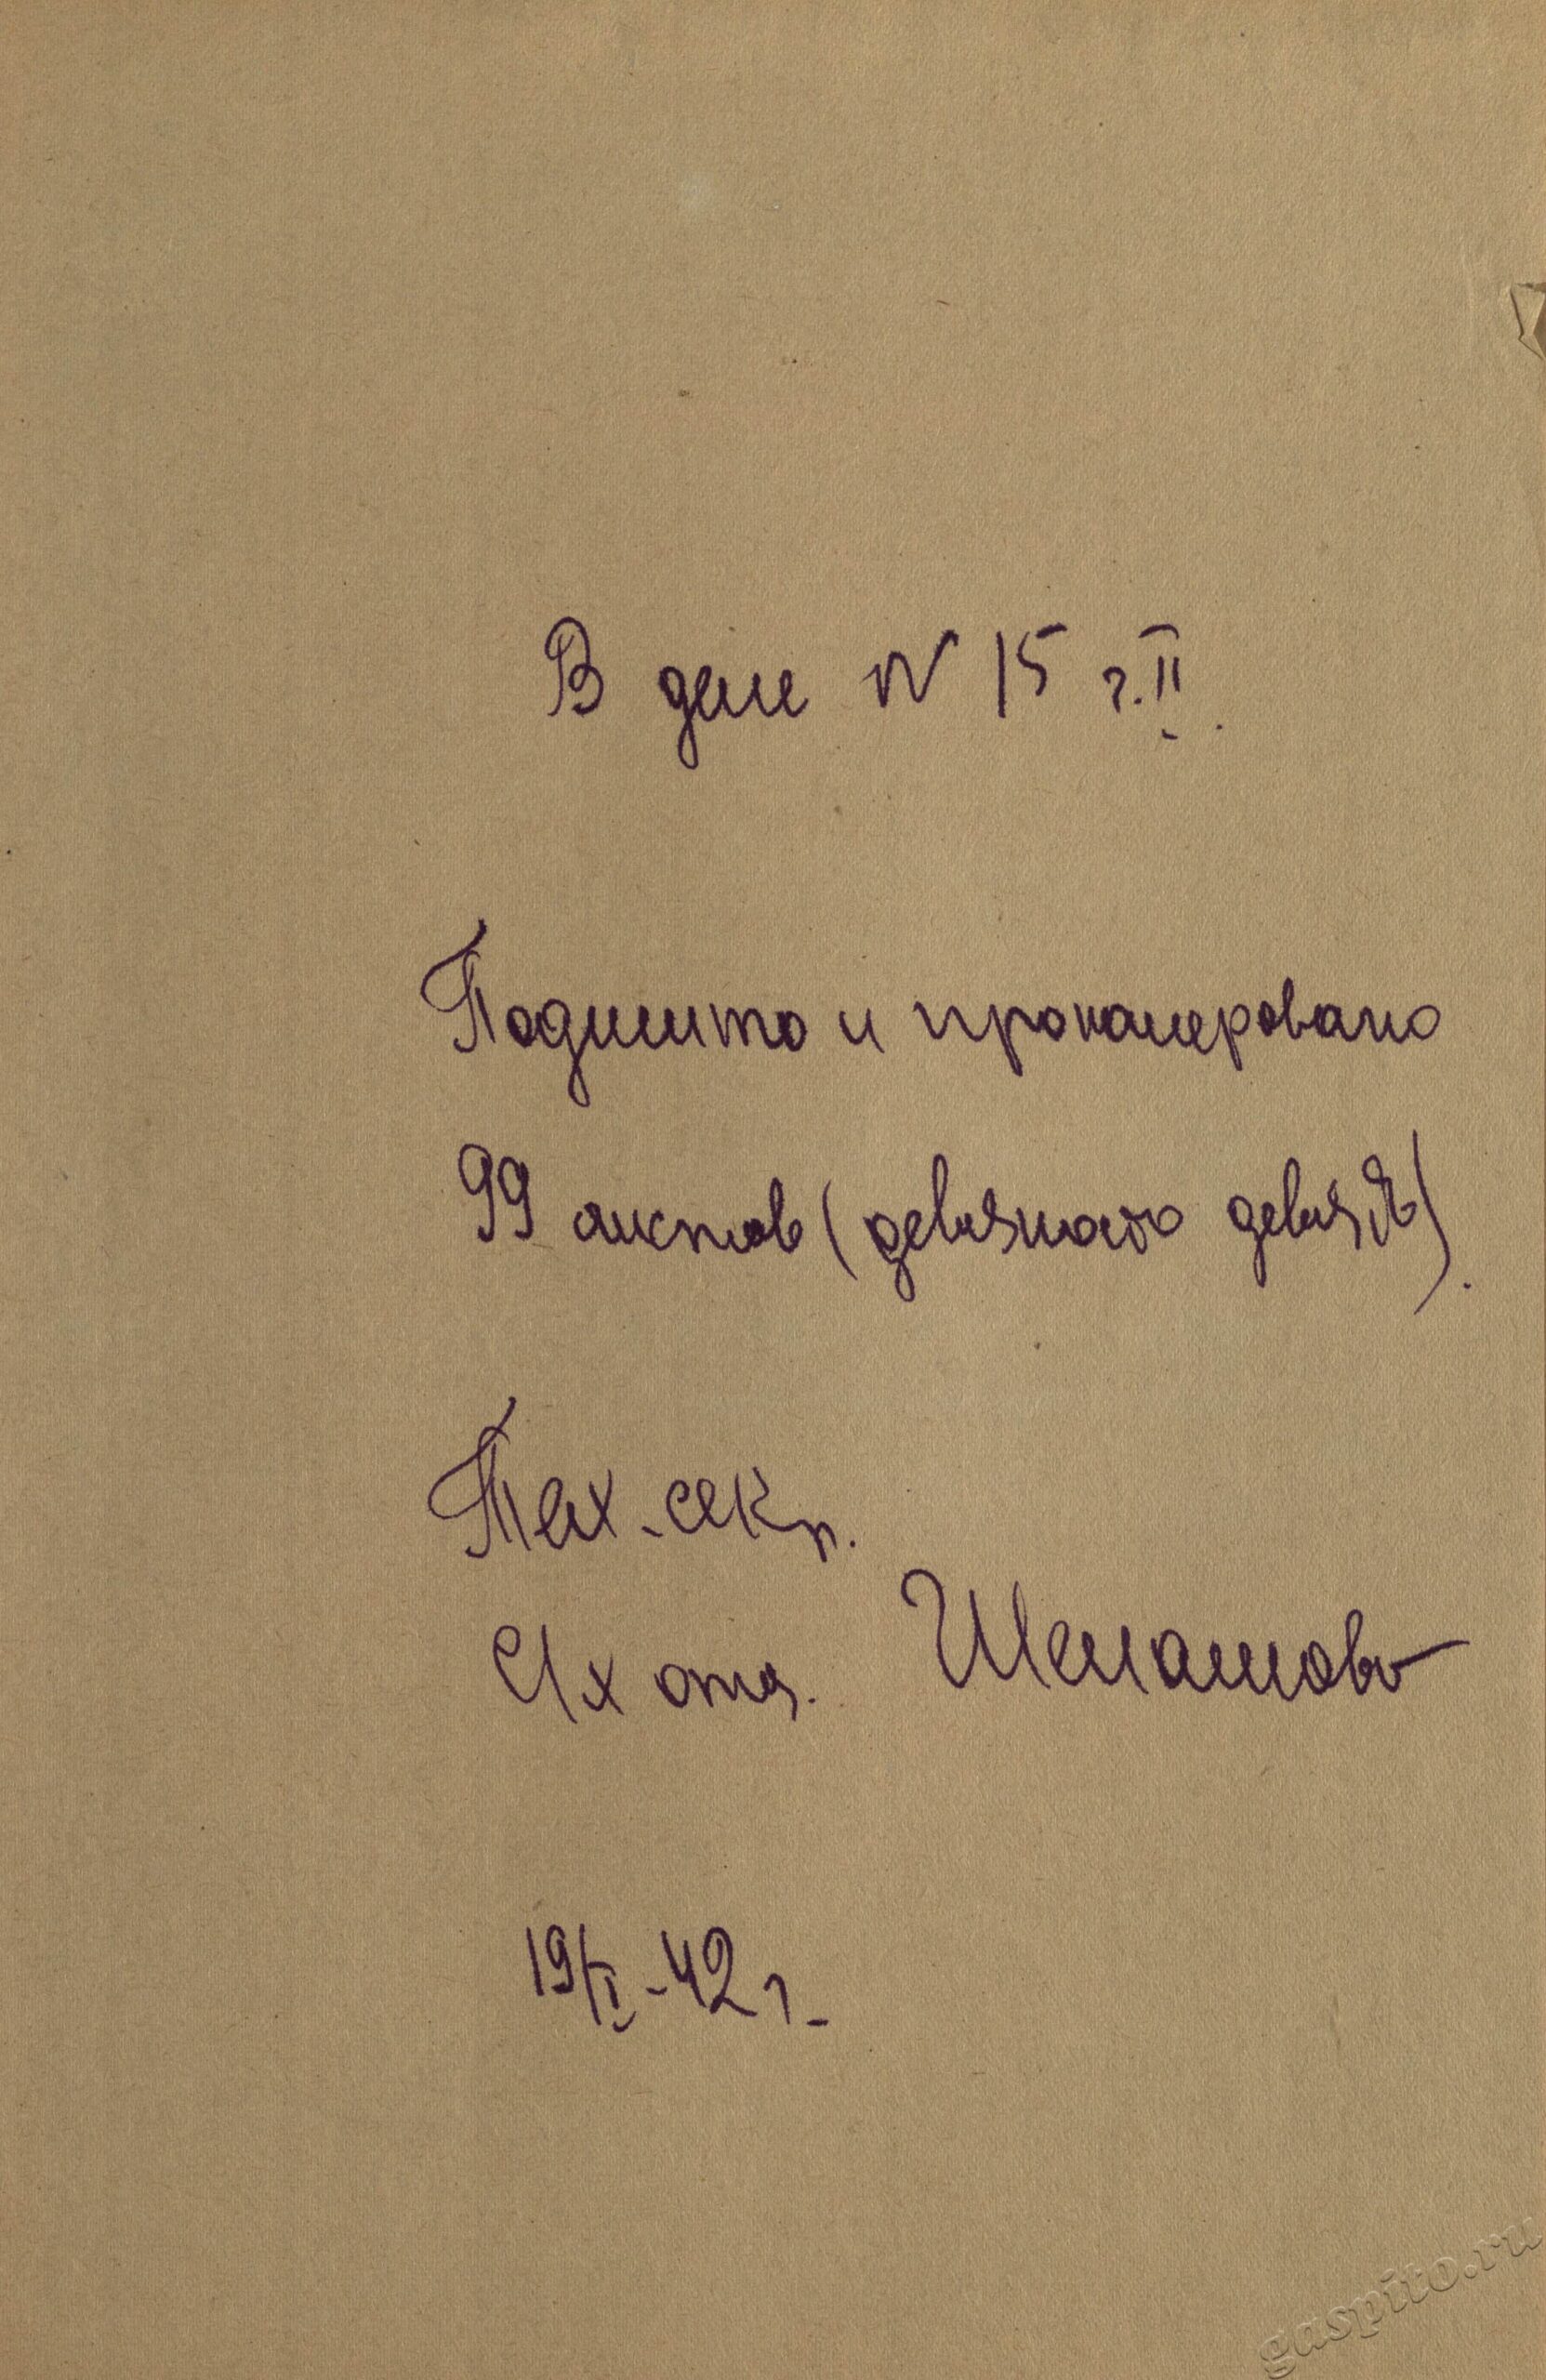 В деле N 15 г. II.
Подшито и прономеровано
99 листов (девяносто девять).
Тех-секр.
с/х отд. Шемашова
19/I-42 г.
gaspito.ru